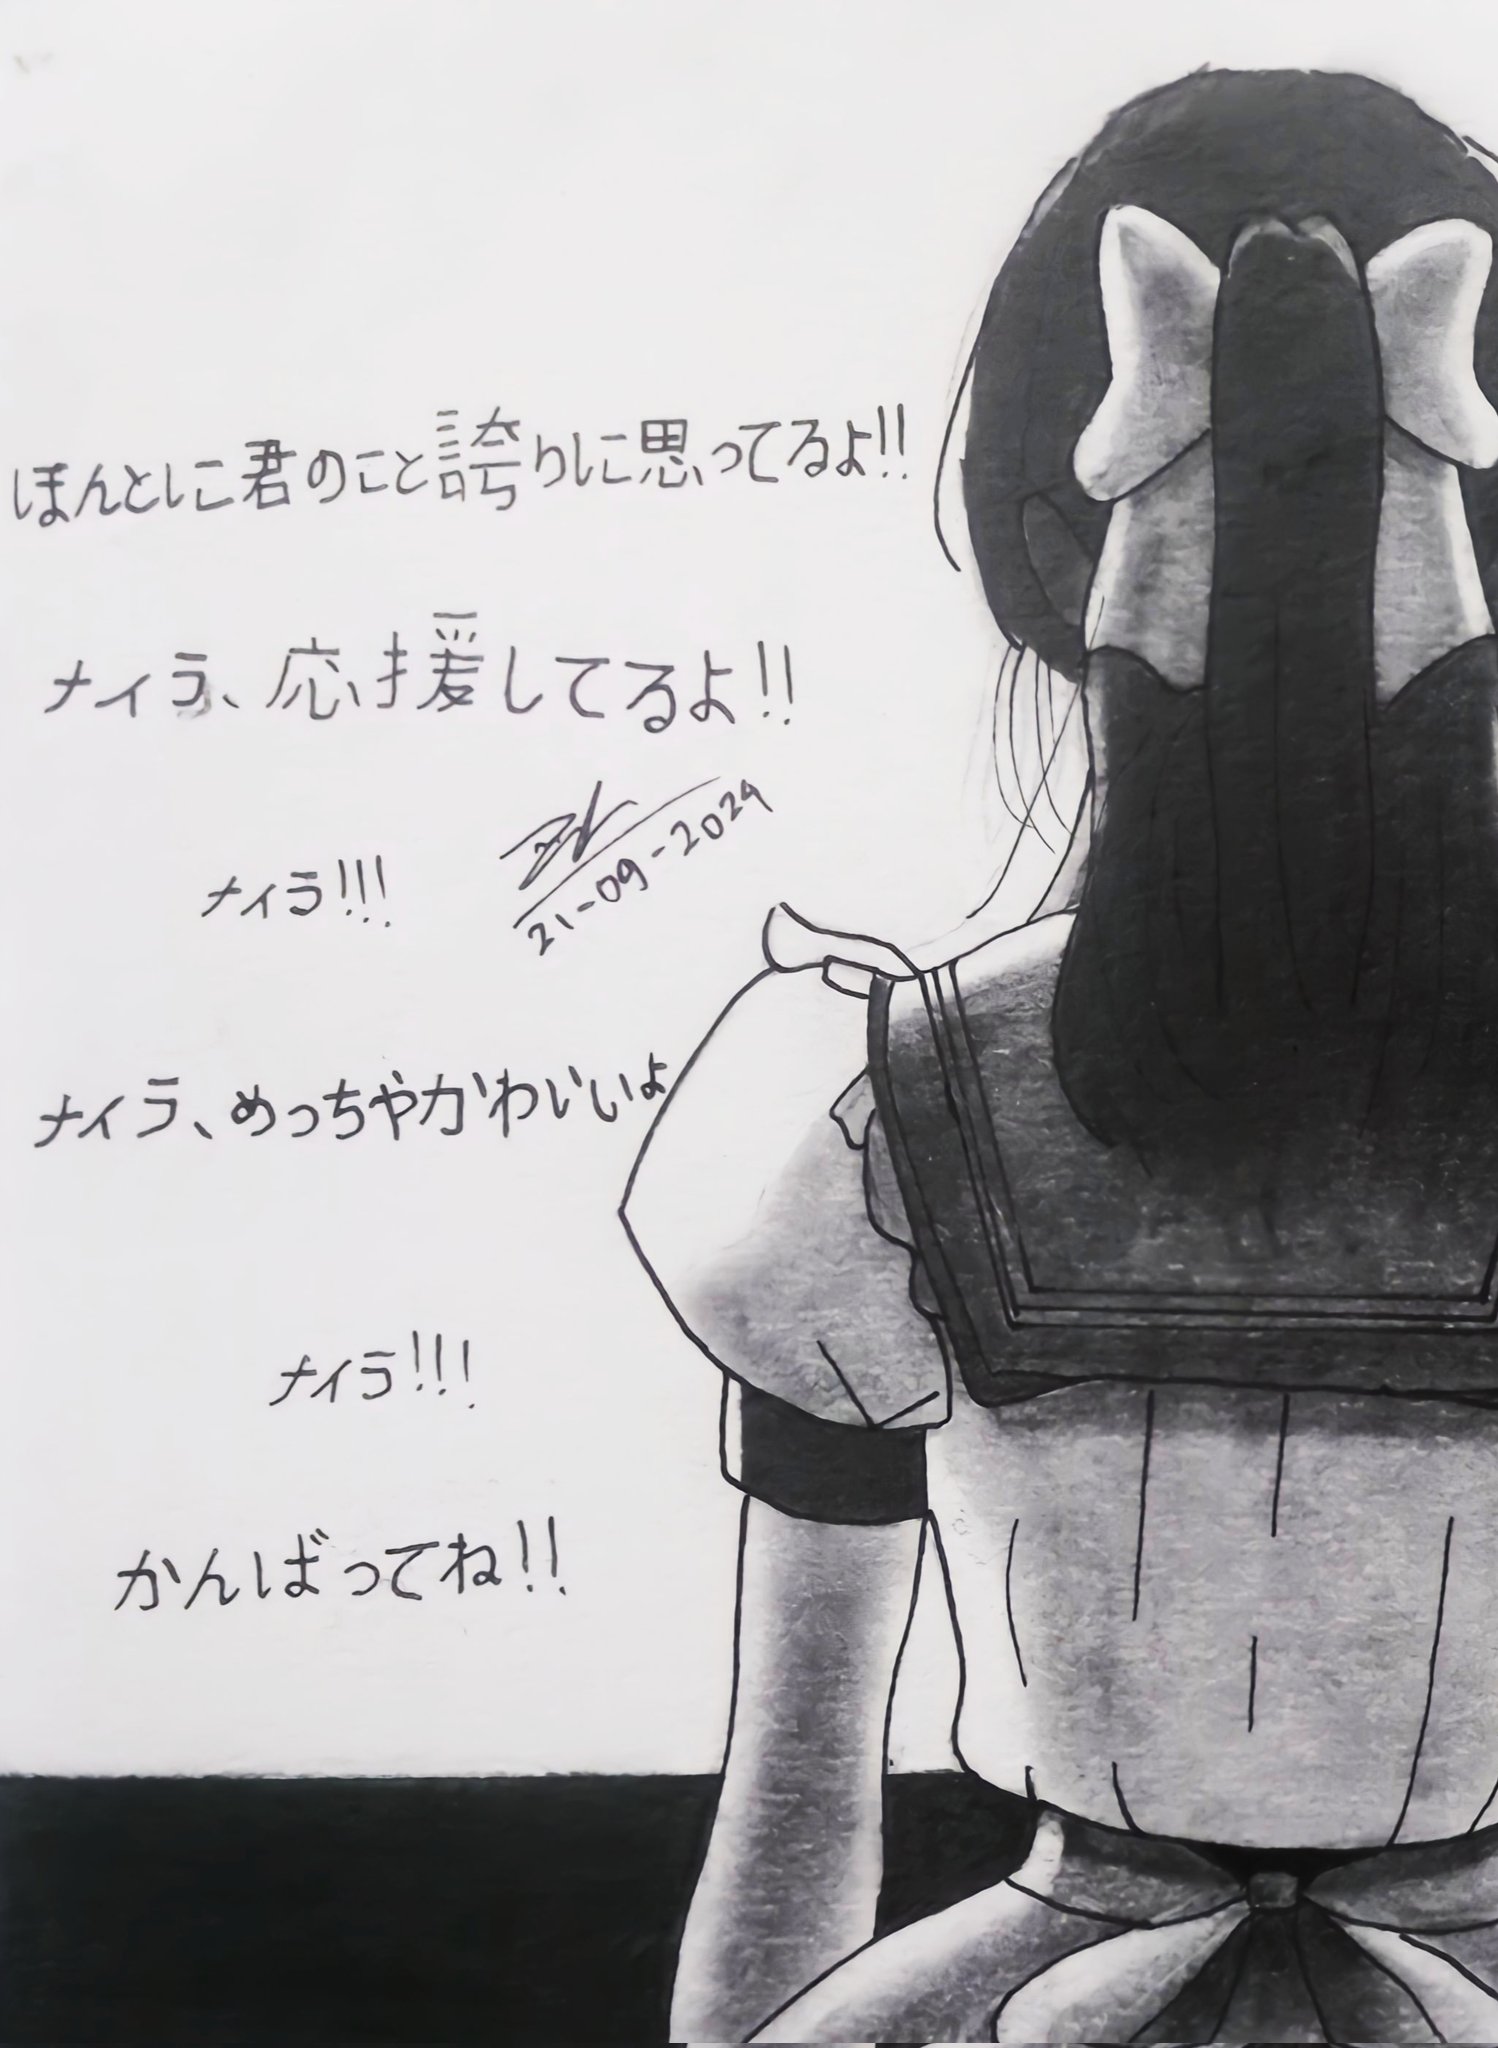 ほんとに君のこと誇りに思ってるよ!!
ナイラ、応援してるよ!!
ナイラ!!!
21-09-2024
ナイラ、めっちゃかわいいよ
ナイラ!!!
かんばってね!!